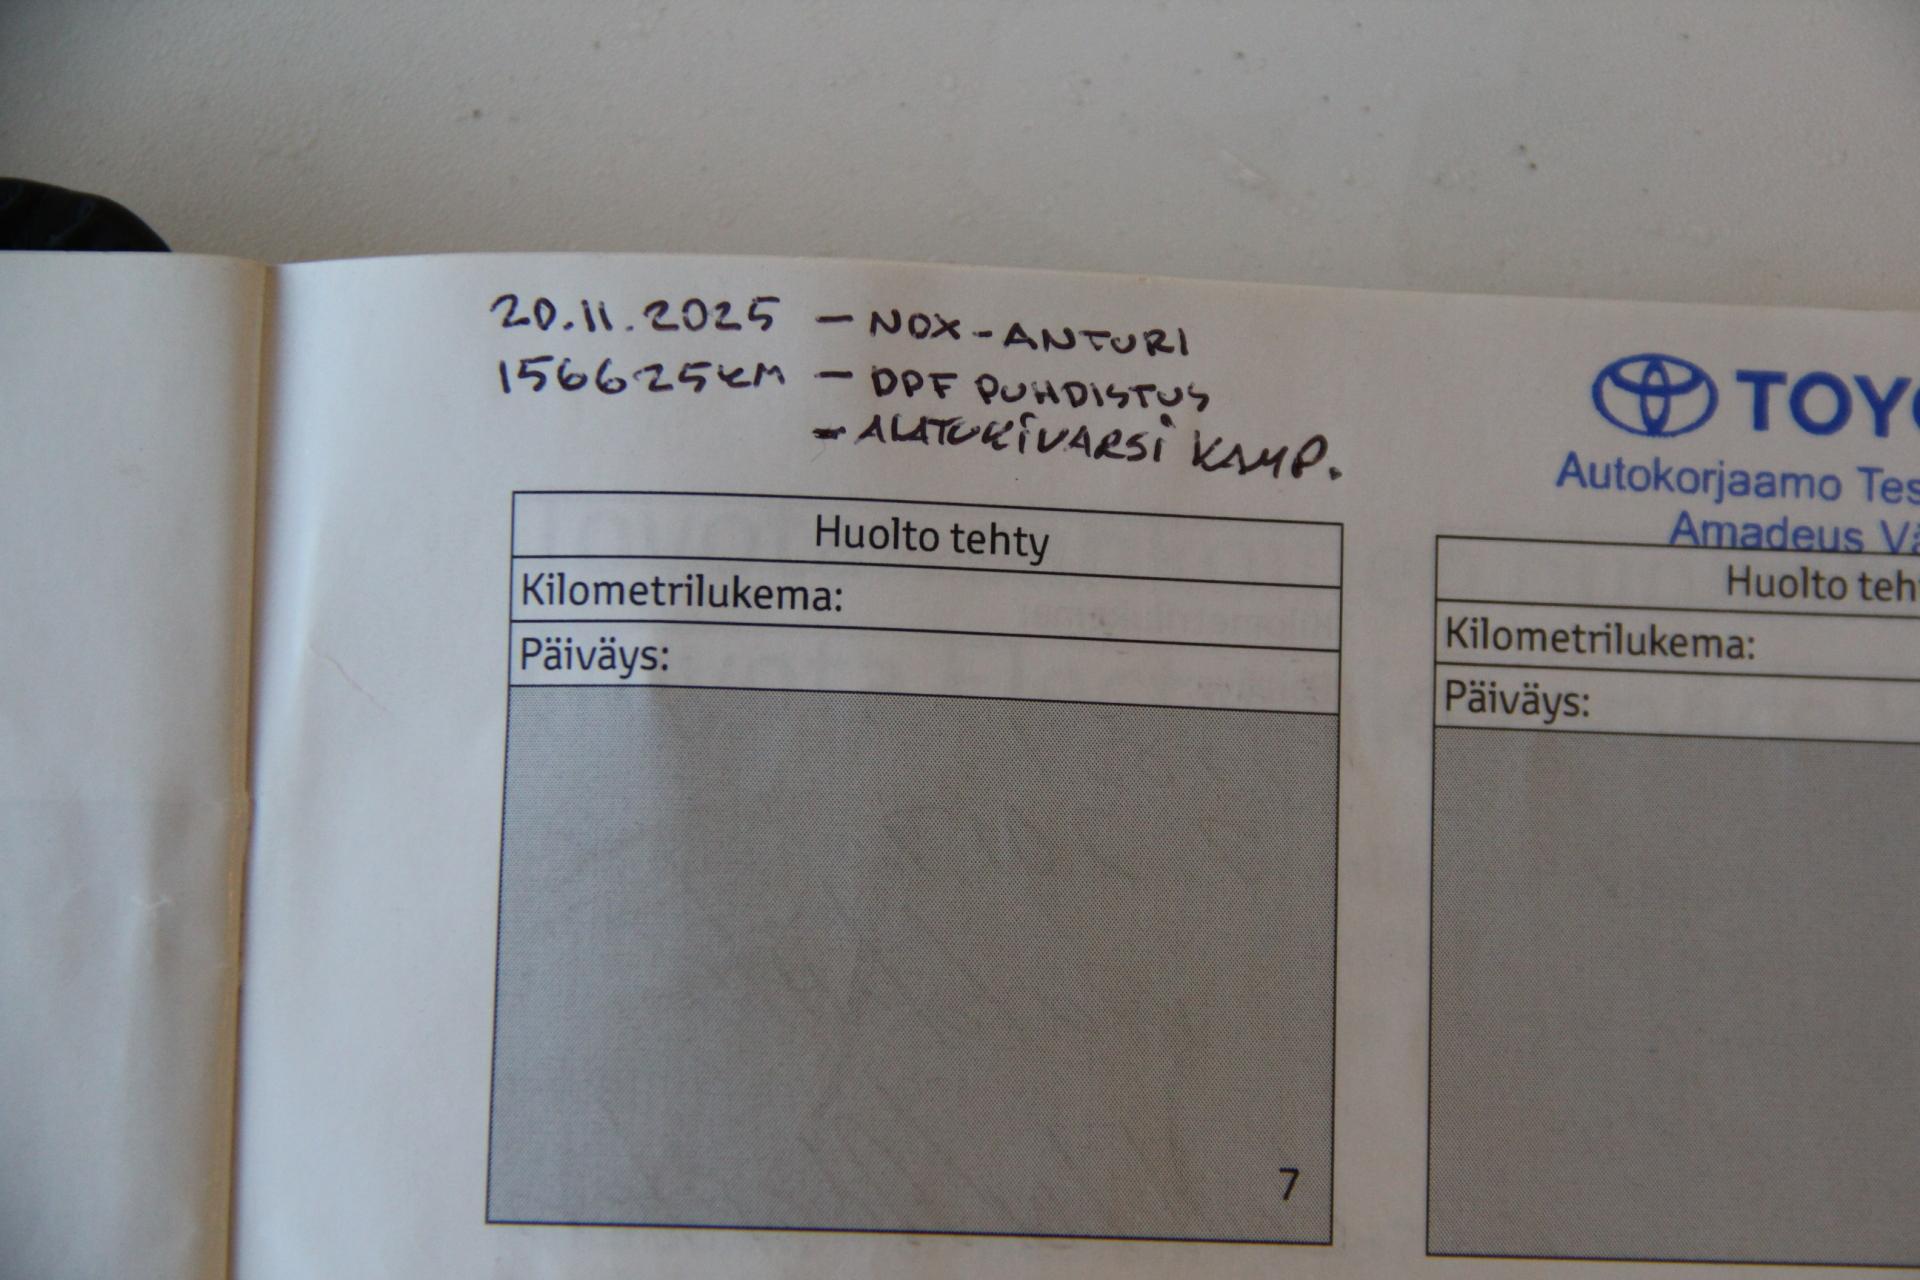 20.11.2025 - NOX-ANTURI
156625KM - DPF PUHDISTUS
- ALATUKIVARSI KAMP.
Huolto tehty
Kilometrilukema:
Päiväys:
7
TOYO
Autokorjaamo Tes
Amadeus Vä
Huolto teh
Kilometrilukema:
Päiväys: